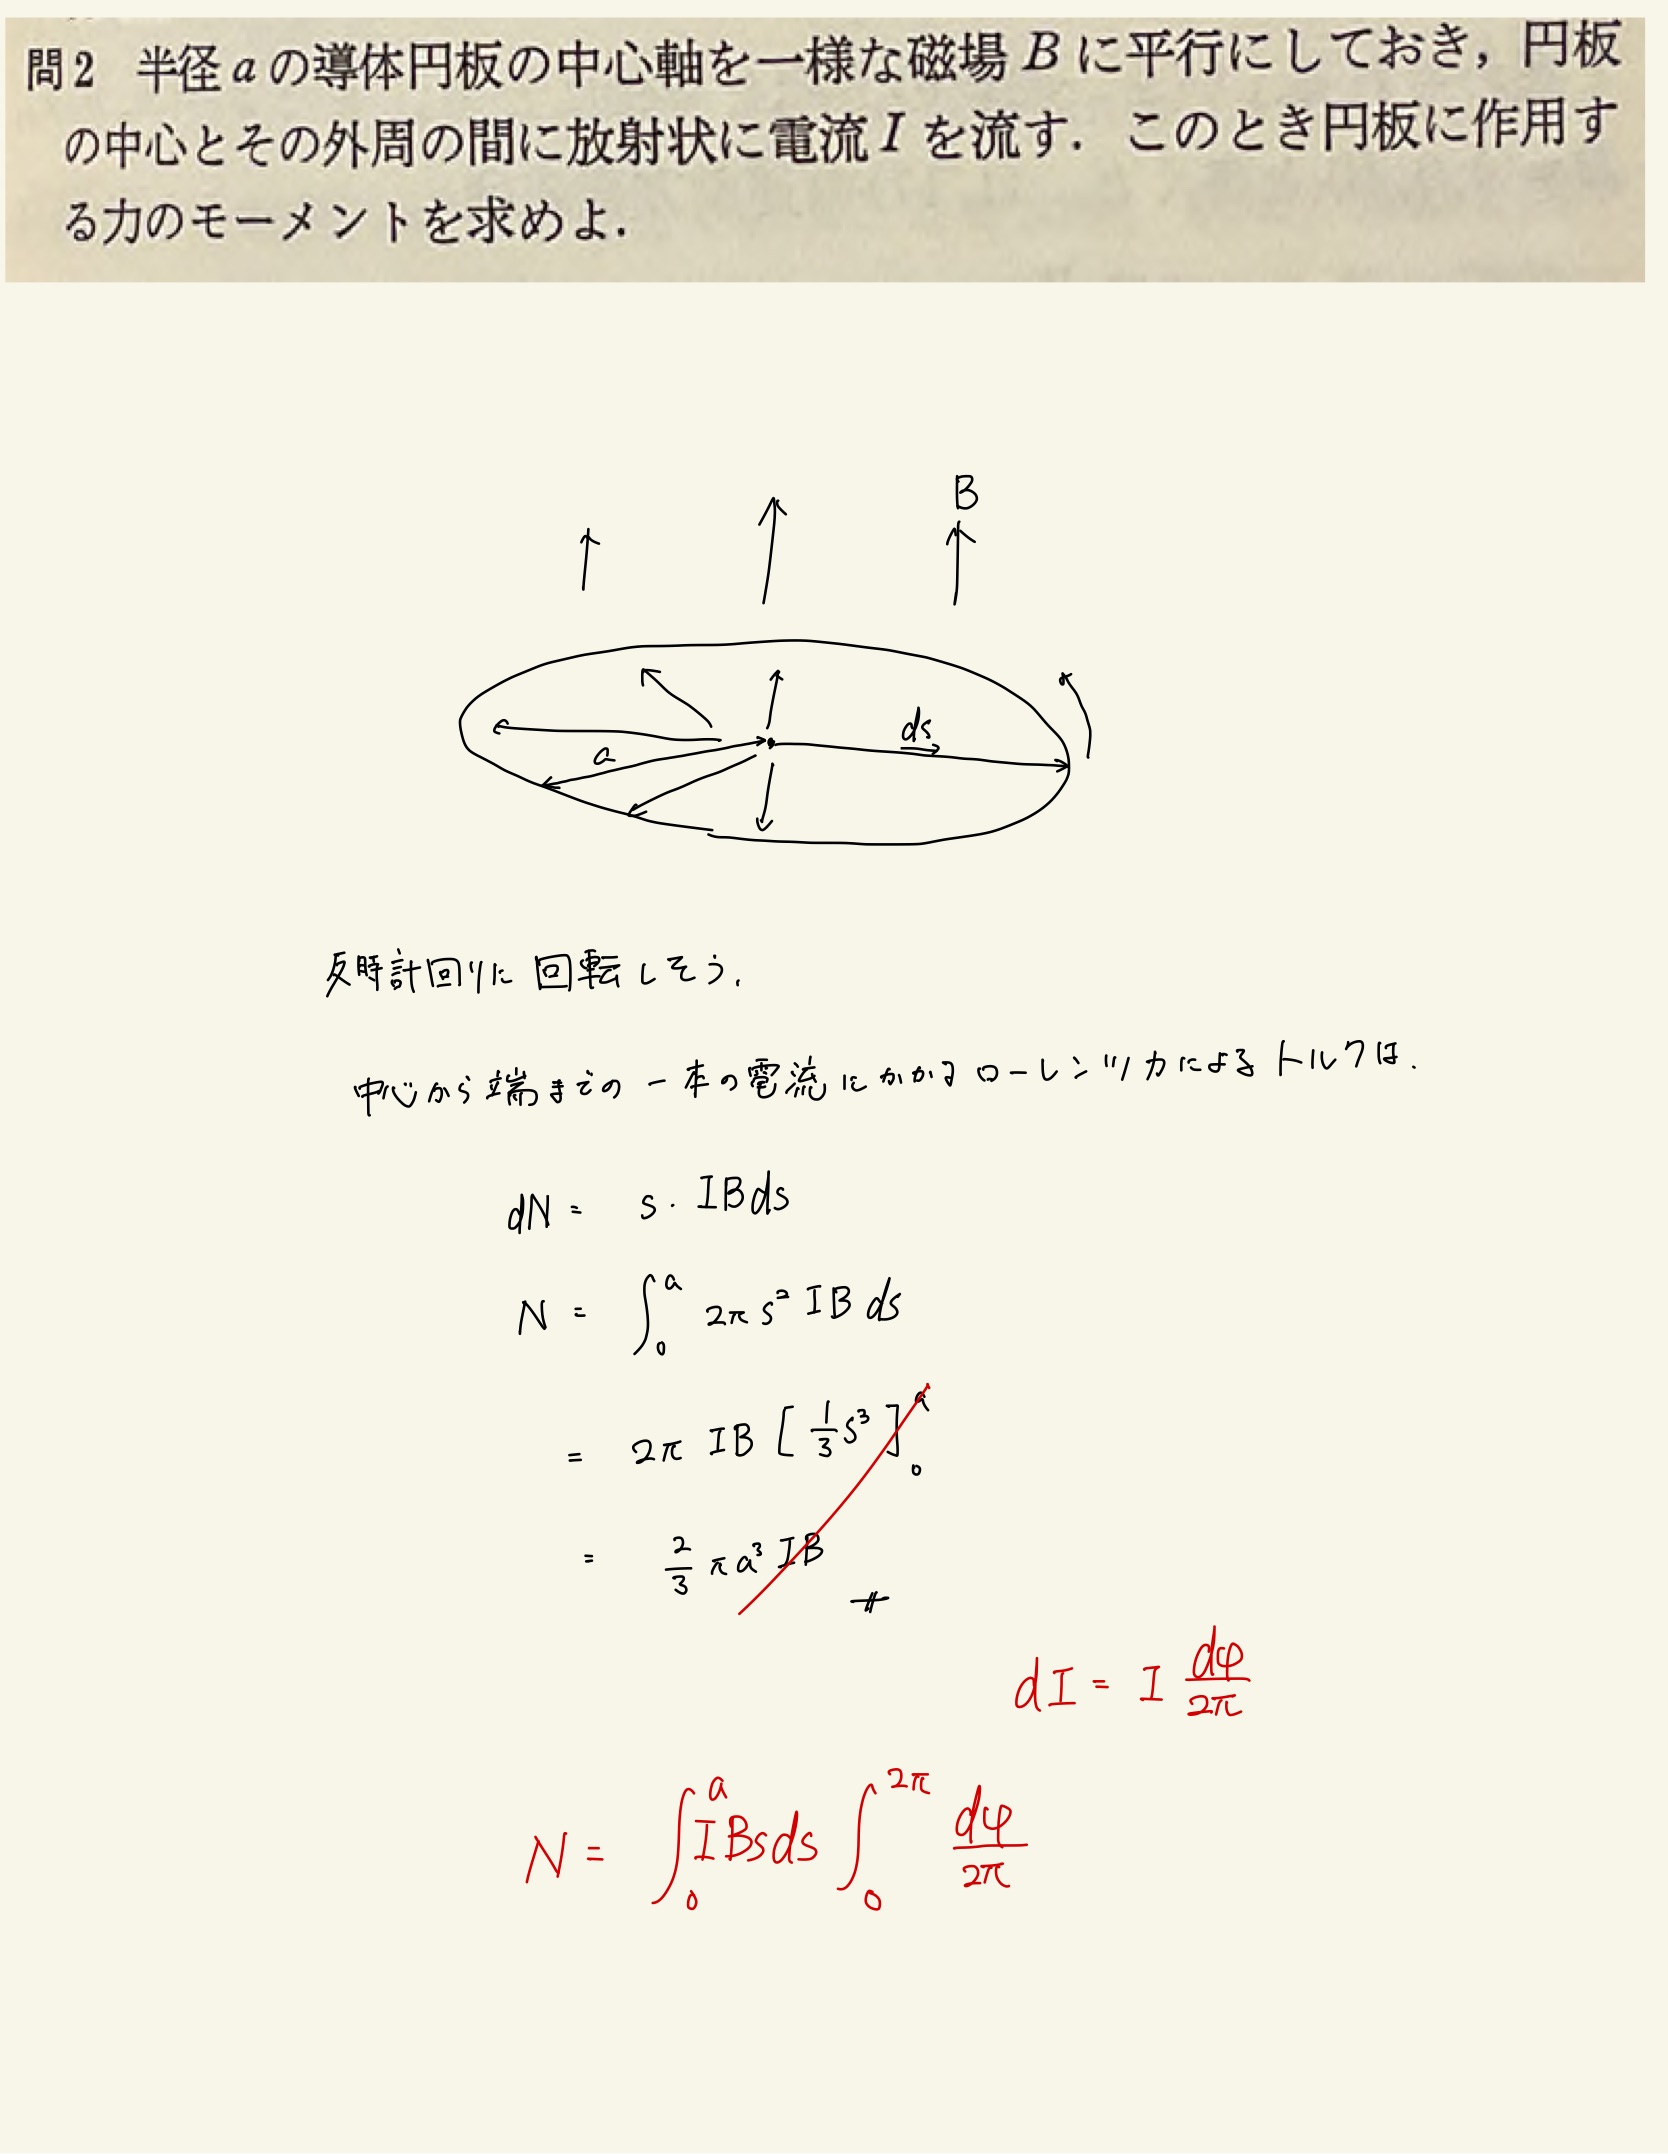 問2 半径aの導体円板の中心軸を一様な磁場Bに平行にしておき，円板
の中心とその外周の間に放射状に電流Iを流す．このとき円板に作用す
る力のモーメントを求めよ．
B
ds
a
反時計回りに回転しそう.
中心から端までの一本の電流にかかるローレンツ力によるトルクは.
dN = s・IBds
N = ∫₀ᵃ 2πs² IB ds
= 2π IB [1/3 s³]₀ᵃ
= 2/3 πa³ IB
dI = I dφ/2π
N = ∫₀ᵃ IBsds ∫₀^2π dφ/2π